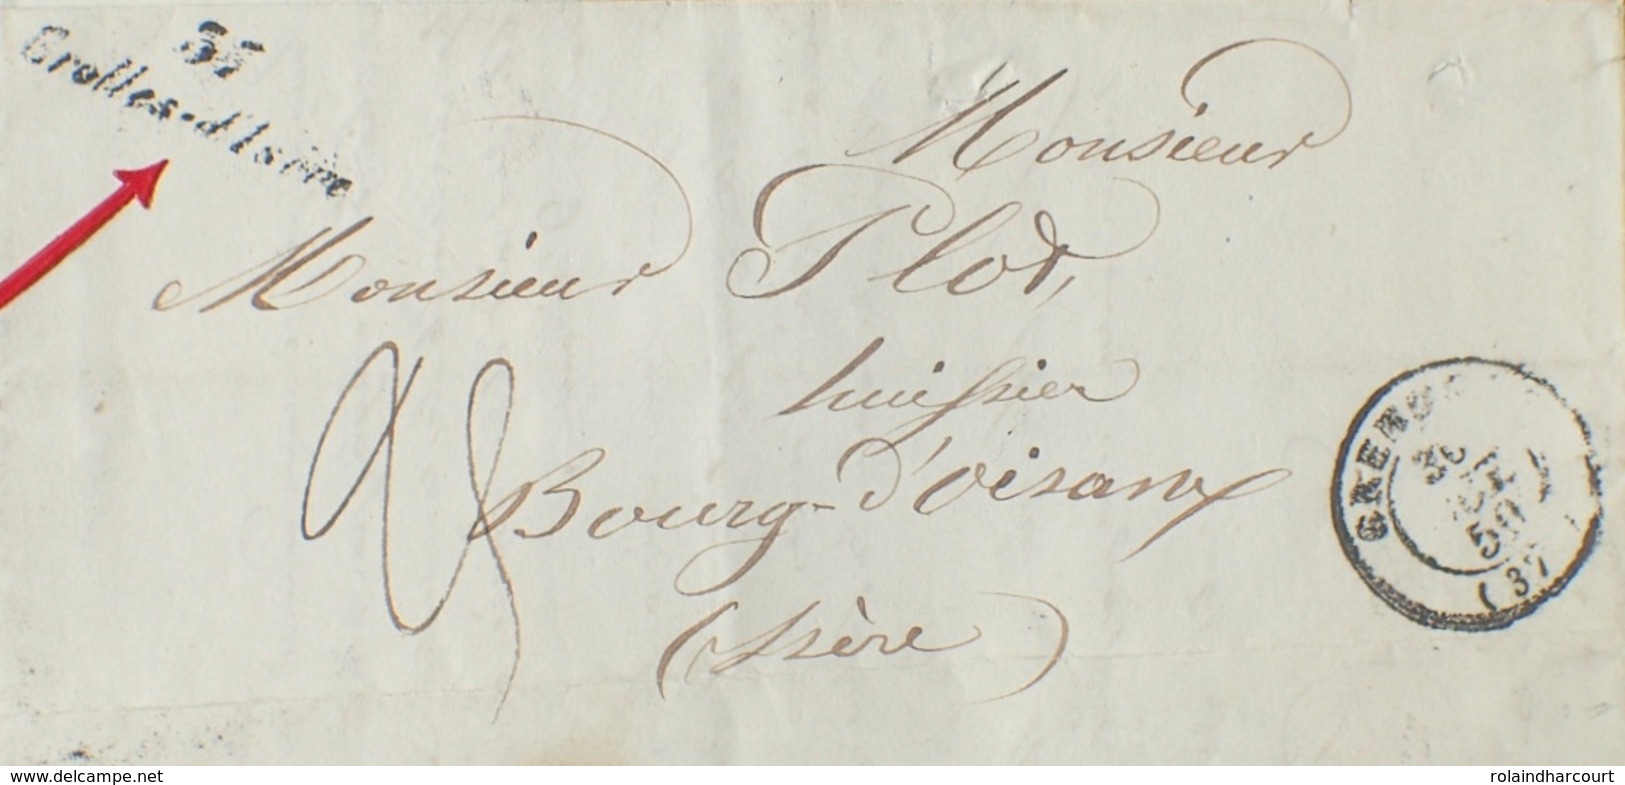 Crolles-d'Isère
Monsieur
Monsieur Plot,
huissier
Bourg-d'oisans
(Isère)
25
50
(37
www.delcampe.net
rolaindharcourt